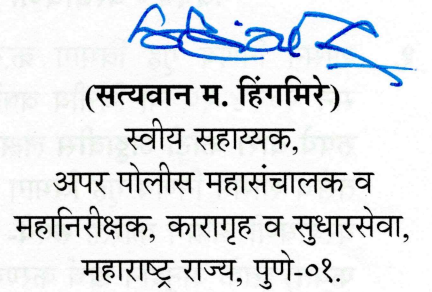 (सत्यवान म. हिंगमिरे)
स्वीय सहाय्यक,
अपर पोलीस महासंचालक व
महानिरीक्षक, कारागृह व सुधारसेवा,
महाराष्ट्र राज्य, पुणे-०१.